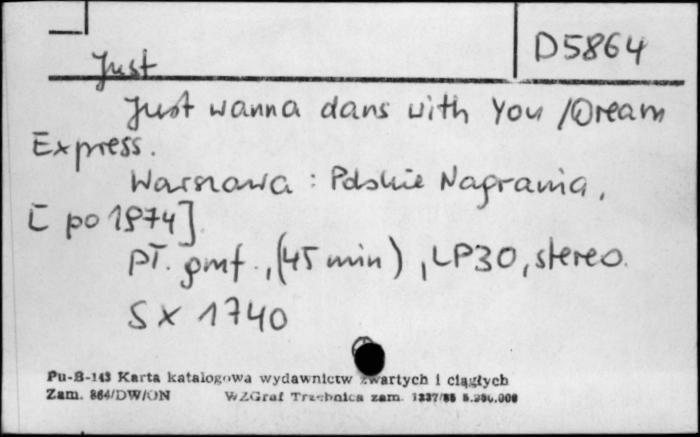 D5864
Just
Just wanna dans with You / Dream
Express.
Warszawa : Polskie Nagrania,
[po 1974].
pł. gmf., (45 min), LP30, stereo.
SX 1740
Pu-B-143 Karta katalogowa wydawnictw zwartych i ciągłych
Zam. 864/DW/ON WZGraf Trzebnica zam. 1337/85